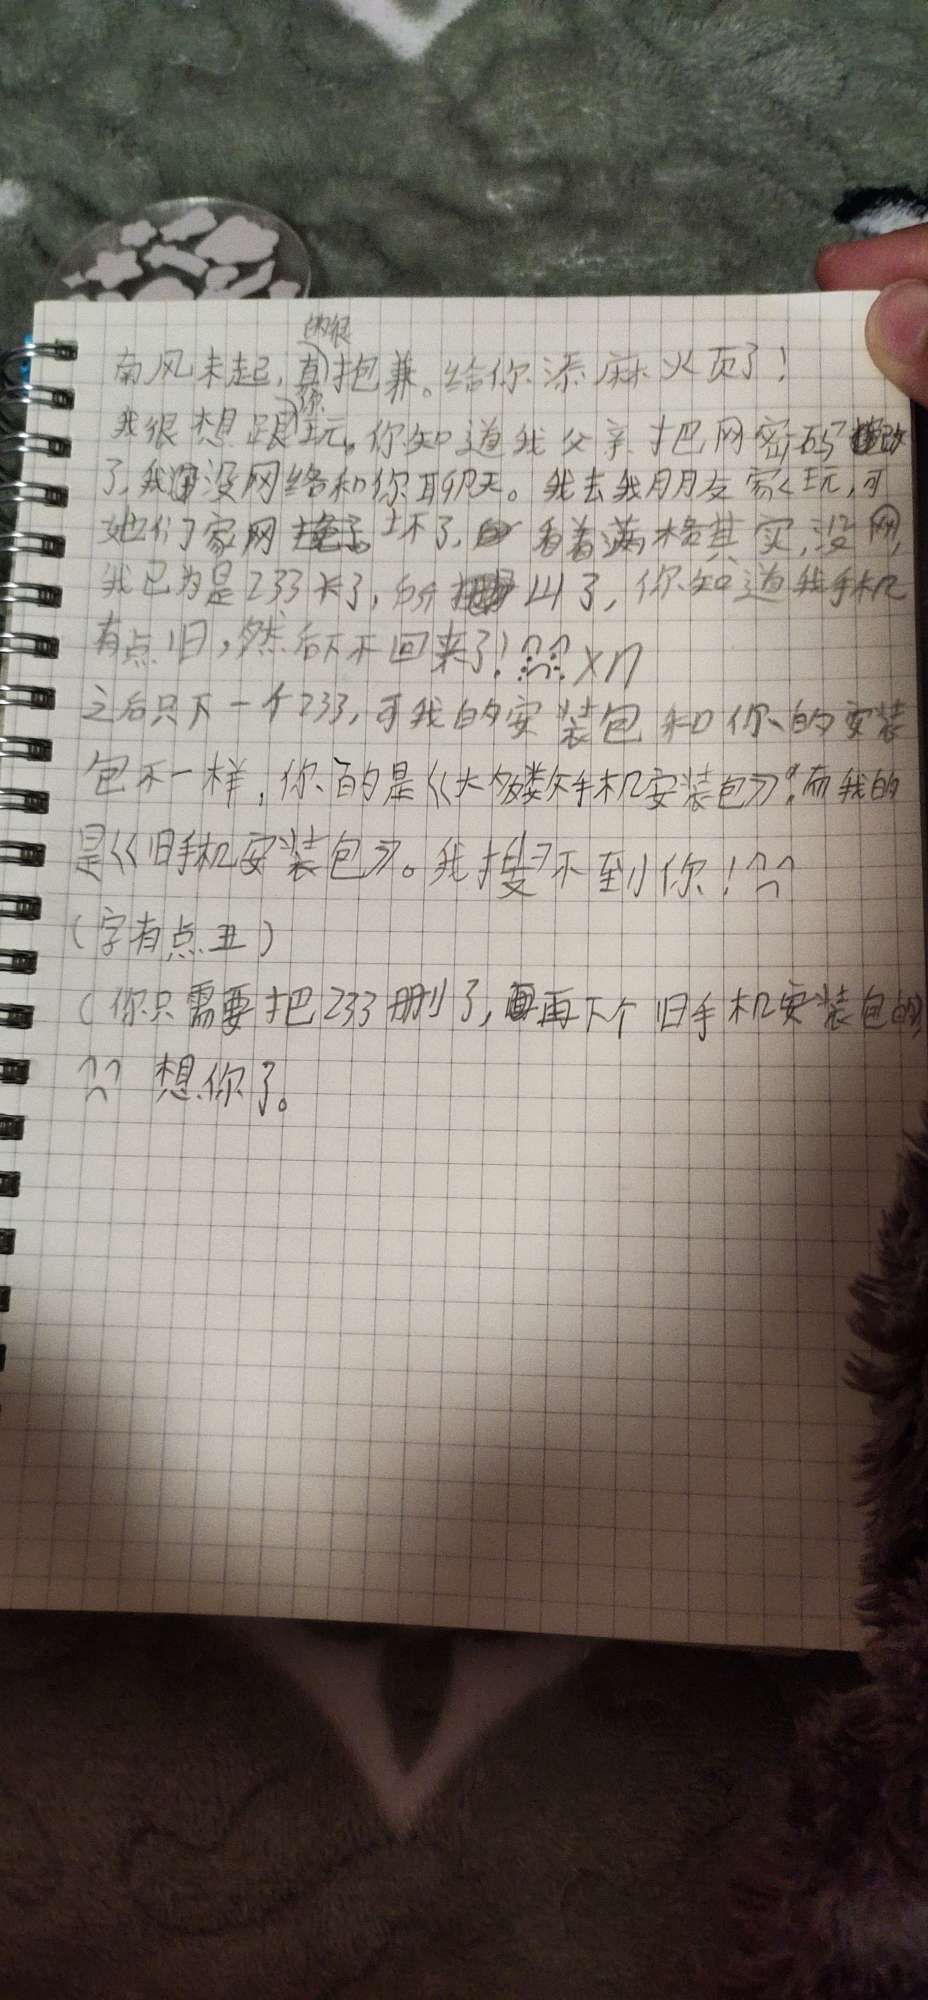 南风未起，真的很抱兼。给你添麻火页了！
我很想跟你玩。你知道我父亲把网密码改
了，我没网络和你聊天。我去我朋友家玩，可
她们家网坏了，看着满格其实，没网，
我已为是233坏了，所 以了，你知道我手机
有点旧，然后下不回来了！
之后只下一个233，可我的安装包和你的安装
包不一样，你的是《大多数手机安装包》，而我的
是《旧手机安装包》。我搜不到你！
（字有点丑）
（你只需要把233删了，再下个旧手机安装包的）
想你了。